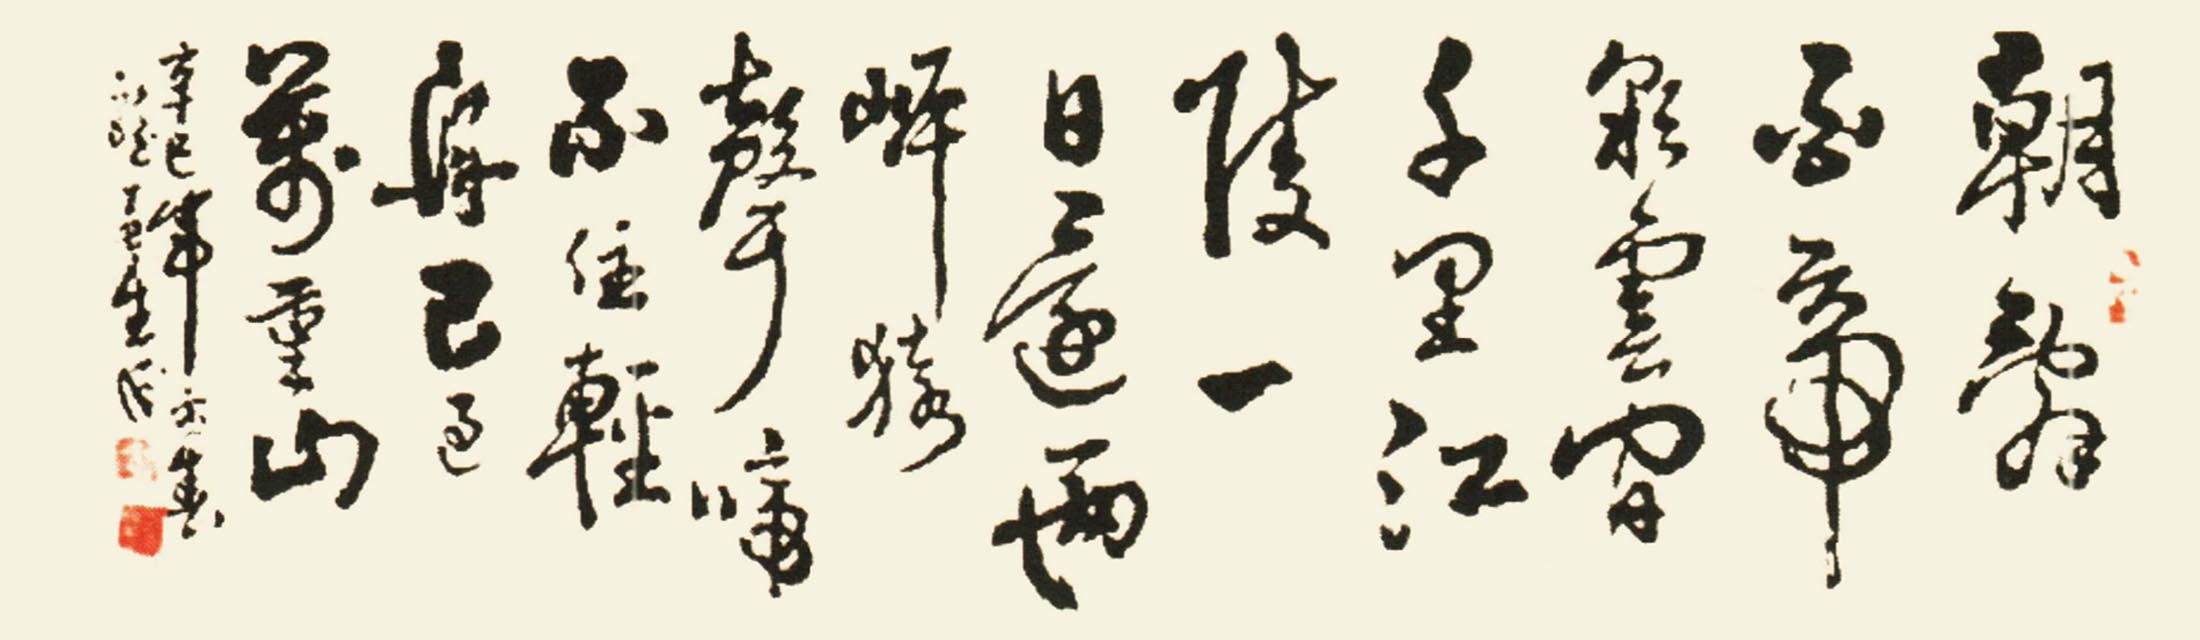 朝辭
白帝
彩雲間
千里江
陵一
日還兩
岸猿
聲啼
不住輕
舟已過
萬重山
辛巳年